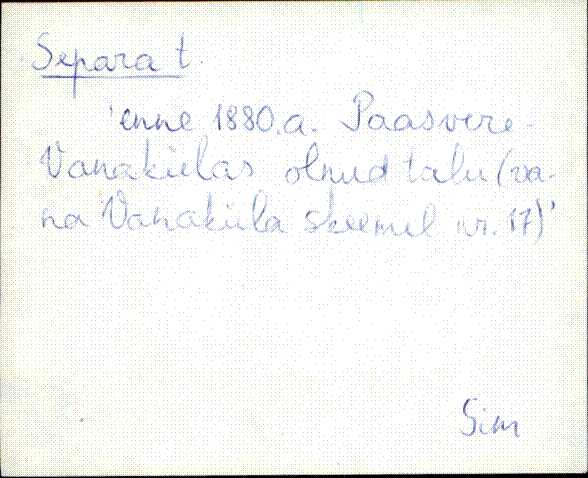 Separa t.
'enne 1880.a. Paasvere-
Vanakülas olnud talu (va-
na Vanaküla skeemil nr. 17)'
Sim